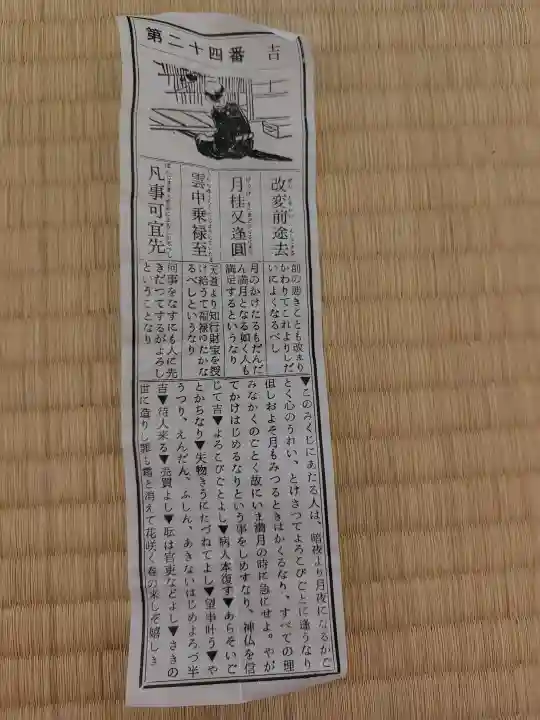 第二十四番 吉
改変前途去
月桂又逢圓
雲中乗禄至
凡事可宜先
前の悪きことも改まり
かわりてこれよりしだ
いによくなるべし
月のかけたるもだんだ
ん満月となる如く人も
満足するというなり
天道より知行財宝を授
け給うて福禄ゆたかな
るべしというなり
何事をなすにも人に先
きだつてするがよろし
ということなり
▼このみくじにあたる人は、暗夜より月夜になるがご
とく心のうれい、とけさつてよろこびごとに逢うなり
但しおよそ月もみつるときはかくるなり、すべての理
みなかくのごとく故にいま満月の時に急にせよ。やが
てかけはじめるなりという事をしめすなり、神仏を信
じて吉▼よろこびごとよし▼病人本復す▼あらそいご
とかちなり▼失物きうにたづねてよし▼望事叶う▼や
うつり、えんだん、ふしん、あきないはじめよろづ半
吉▼待人来る▼売買よし▼職は官吏などよし▼さきの
世に造りし罪も霜と消えて花咲く春の来しぞ嬉しき